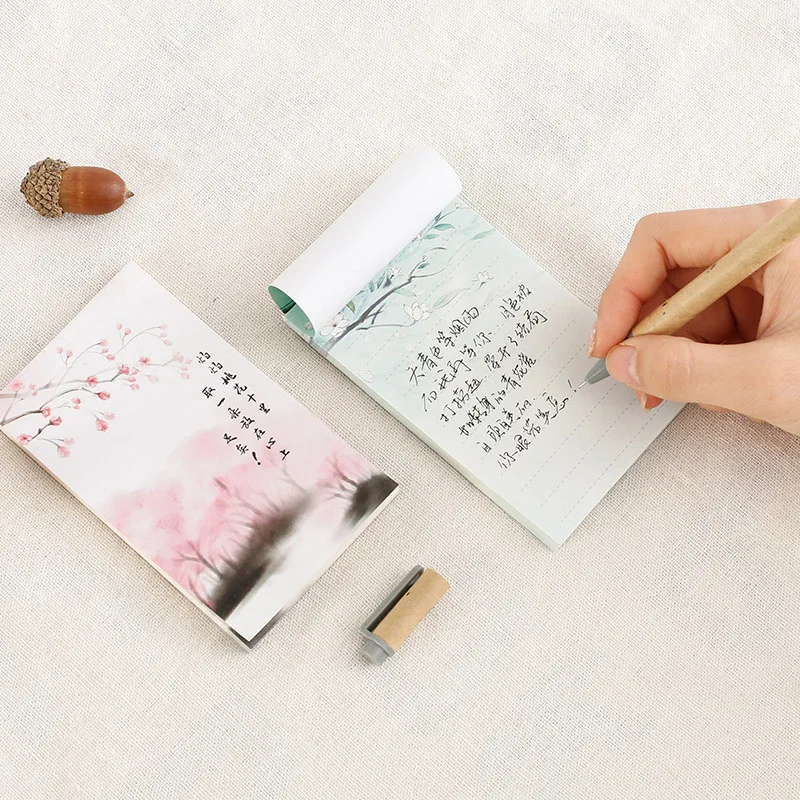 灼灼桃花十里
取一朵放在心上
足矣!
天青色等烟雨
而我在等你 月色被
打捞起 晕开了结局
如传世的青花瓷
自顾自美丽
你眼带笑意!